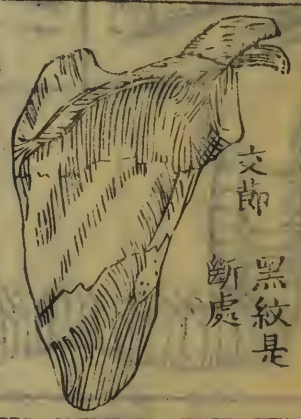 交節
黑紋是
斷處